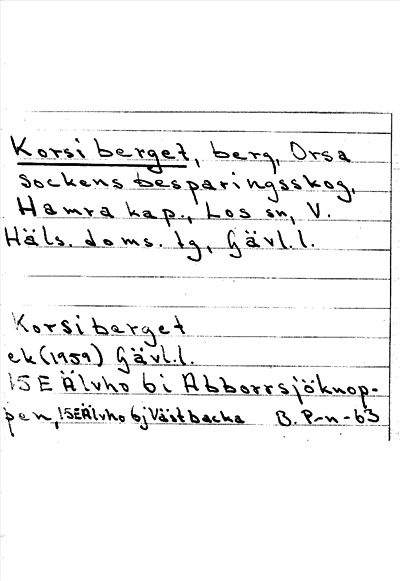 Korsiberget, berg, Orsa
sockens besparingsskog,
Hamra kap., Los sn, V.
Häls. doms. tg, Gävl.l.
Korsiberget
ek (1959) Gävl.l.
15E Älvho 6i Abborrsjöknop-
pen, 15E Älvho 6j Västbacka B. P-n-63